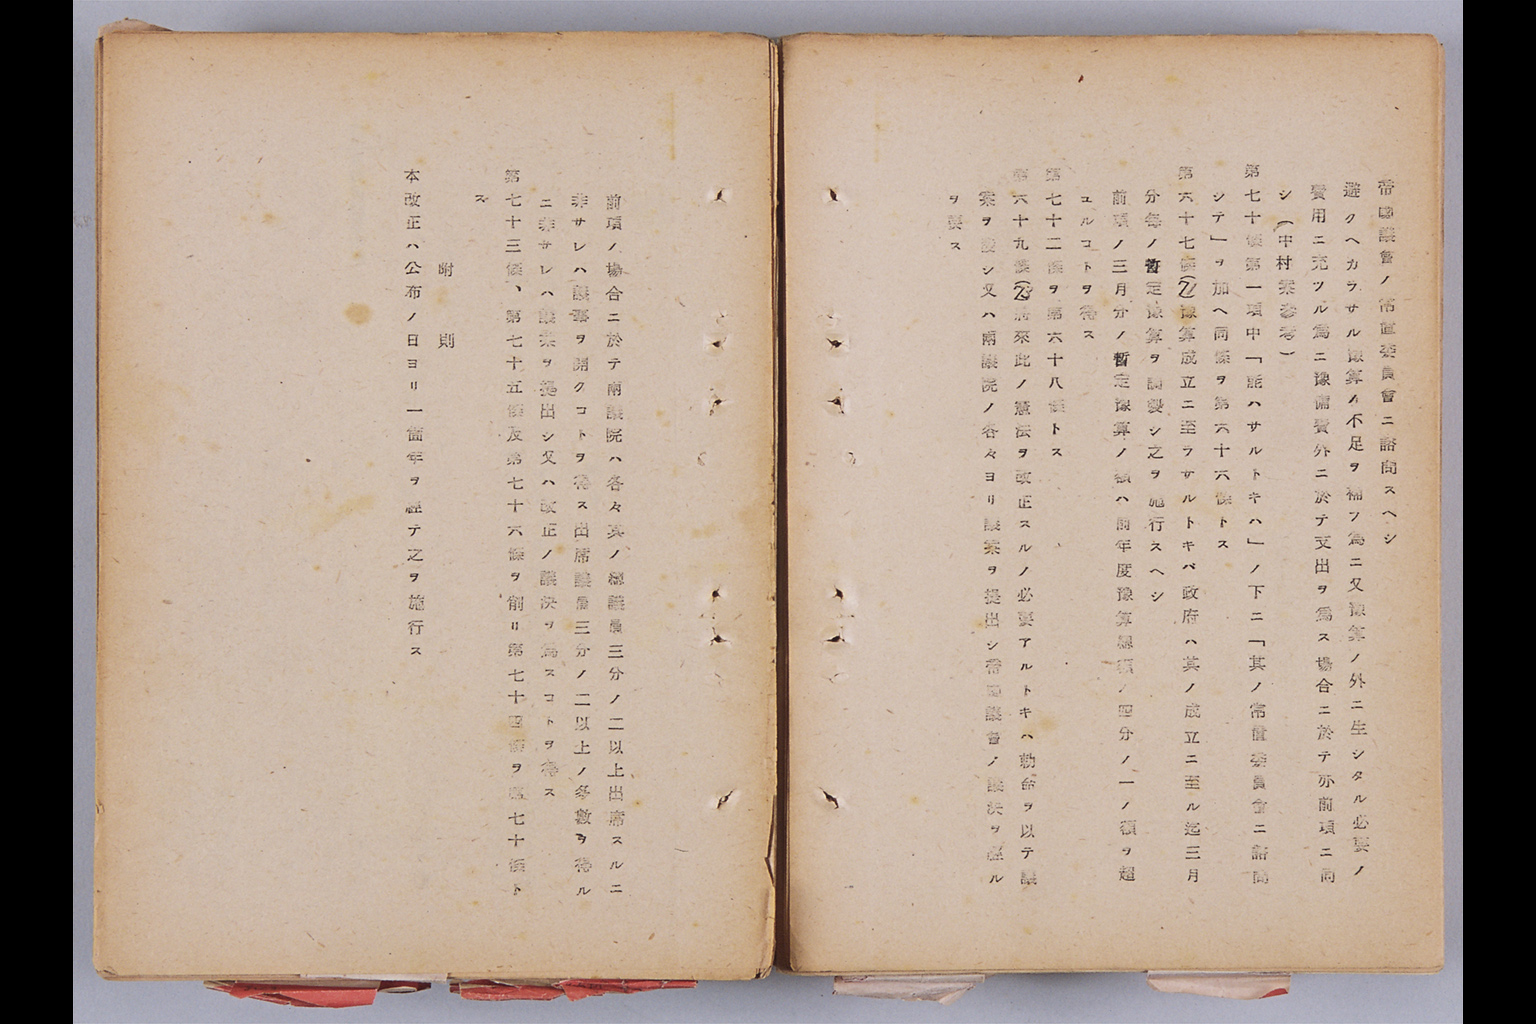 帝國議會ノ常置委員會ニ諮問スヘシ
避クヘカラサル豫算ノ不足ヲ補フ爲ニ又豫算ノ外ニ生シタル必要ノ
費用ニ充ツル爲ニ豫備費外ニ於テ支出ヲ爲ス場合ニ於テ亦前項ニ同
シ(中村案参考)
第七十條第一項中「能ハサルトキハ」ノ下ニ「其ノ常置委員會ニ諮問
シテ」ヲ加ヘ同條ヲ第六十六條トス
第六十七條(乙)豫算成立ニ至ラサルトキバ政府ハ其ノ成立ニ至ル迄三月
分每ノ暫定豫算ヲ調製シ之ヲ施行スヘシ
前項ノ三月分ノ暫定豫算ノ額ハ前年度豫算總額ノ四分ノ一ノ額ヲ超
ユルコトヲ得ス
第七十二條ヲ第六十八條トス
第六十九條(乙)將來此ノ憲法ヲ改正スルノ必要アルトキハ勅命ヲ以テ議
案ヲ發シ又ハ兩議院ノ各々ヨリ議案ヲ提出シ帝國議會ノ議決ヲ經ル
ヲ要ス
前項ノ場合ニ於テ兩議院ハ各々其ノ總議員三分ノ二以上出席スルニ
非サレハ議事ヲ開クコトヲ得ス出席議員三分ノ二以上ノ多數ヲ得ル
ニ非サレハ議案ヲ提出シ又ハ改正ノ議決ヲ爲スコトヲ得ス
第七十三條、第七十五條及第七十六條ヲ削リ第七十四條ヲ第七十條ト
ス
附則
本改正ハ公布ノ日ヨリ一箇年ヲ經テ之ヲ施行ス